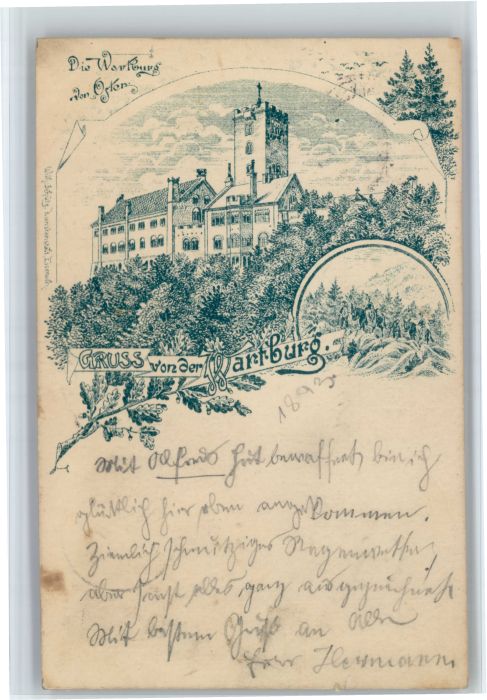 Die Wartburg
von Osten.
GRUSS von der Wartburg.
1892
Mit Alfreds Hut bewaffnet bin ich
glücklich hier oben angekommen.
Ziemlich schmutziges Regenwetter,
aber sonst alles ganz ausgezeichnet
Mit bestem Gruß an Alle
Euer Hermann